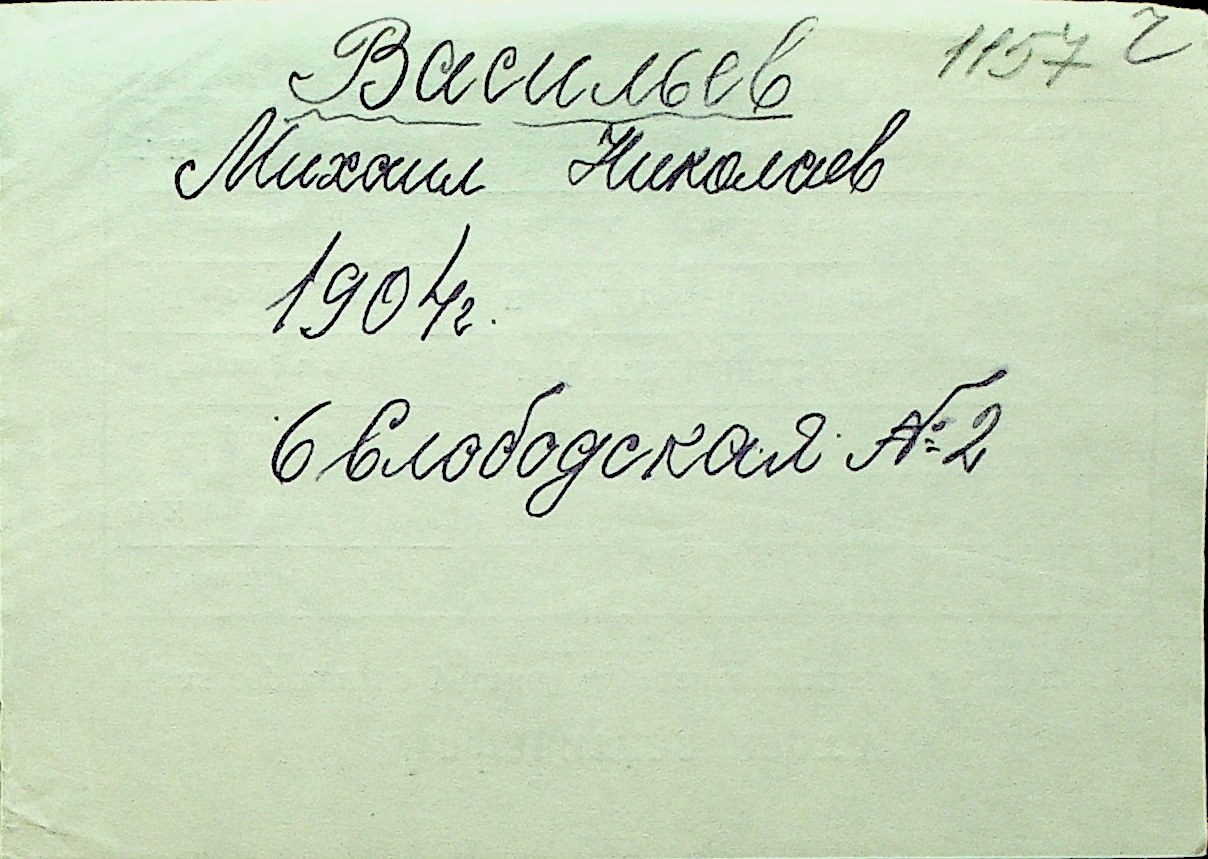 1157 г
Васильев
Михаил Николаев
1904г.
6 Слободская №2